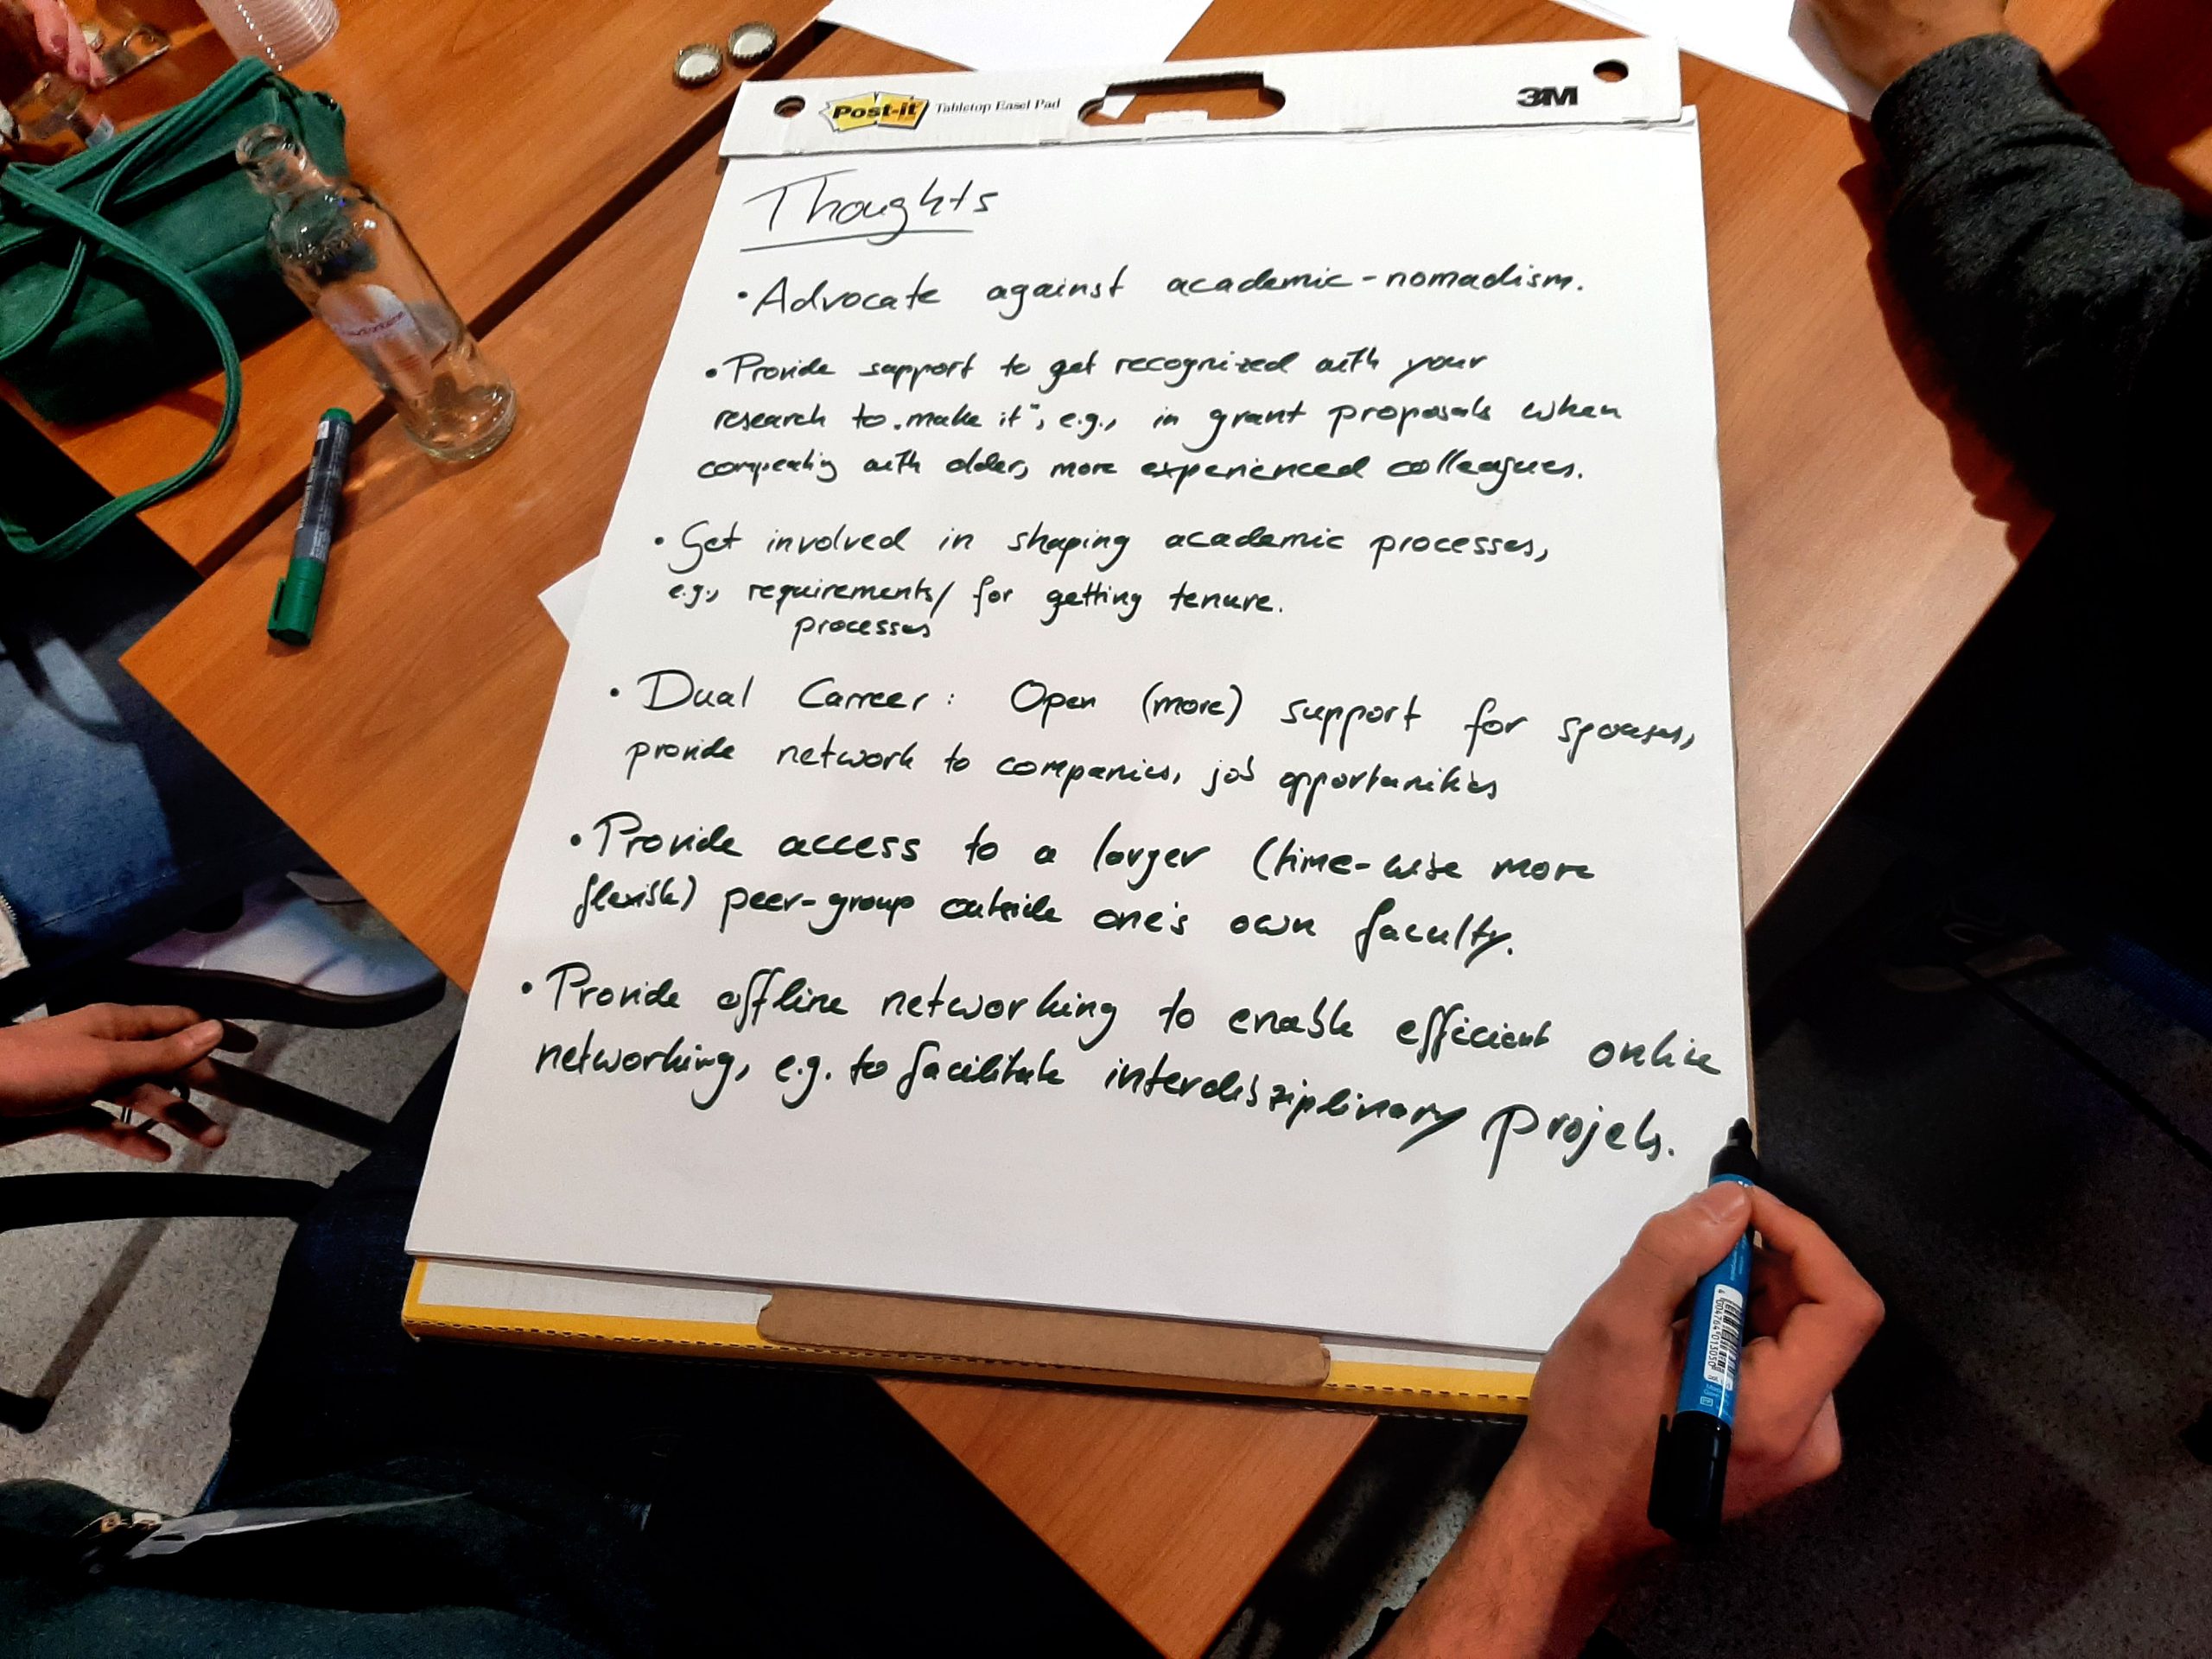 Post-it Tabletop Easel Pad
3M
Thoughts
• Advocate against academic-nomadism.
• Provide support to get recognized with your
research to „make it“, e.g., in grant proposals when
competing with older, more experienced colleagues.
• Get involved in shaping academic processes,
e.g., requirements/ for getting tenure.
processes
• Dual Carreer: Open (more) support for spouses,
provide network to companies, job opportunities
• Provide access to a larger (time-wise more
flexible) peer-group outside one's own faculty.
• Provide offline networking to enable efficient online
networking, e.g. to facilitate interdisziplinary projets.
4 004764 013050